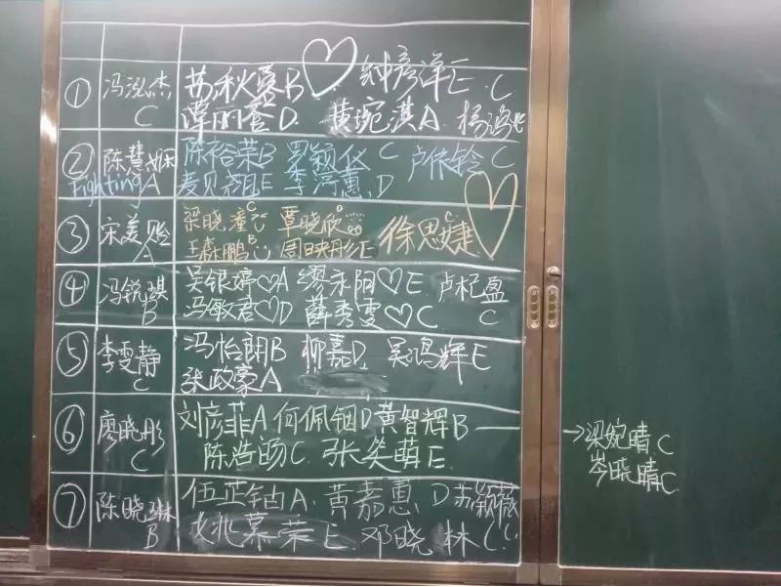 ① 冯泓杰 C 苏秋蓉B 钟彦洋E C
谭丽蓉D 黄琬淇A 杨鸿
② 陈慧妍 A 陈裕荣B 罗颖仪 C 卢依铃 C
Fighting 麦贝尧E 李湾惠 D
③ 宋美贻 A 梁晓潼 C 覃晓欣 D 徐思婕 C
王森鹏 B 周映彤E
④ 冯锐琪 B 吴银婷♡A 缪永阳♡E 卢杞盈 C
马敏君♡D 薛秀雯♡C
⑤ 李雯静 C 冯怡朗B 柳嘉D 吴鸿辉E
张政豪A
⑥ 廖晓彤 C 刘彦菲A 何佩钿D 黄智辉B → 梁婉晴C
陈浩旸C 张芷萌E 岑晓晴C
⑦ 陈晓琳 B 伍芷钴A 黄嘉惠 D 苏颖薇 C
姚慕荣E 邓晓林C